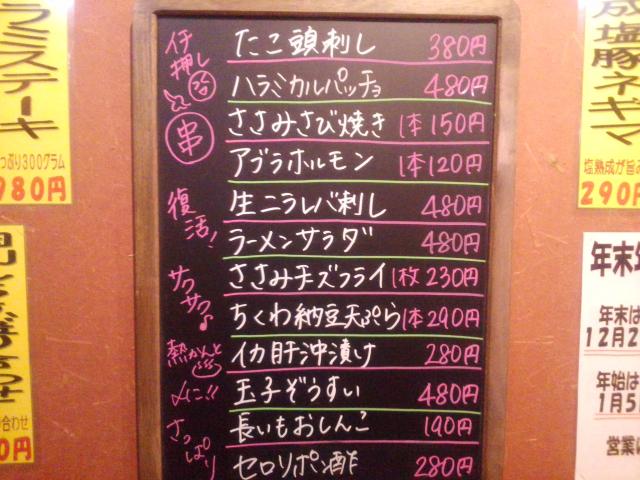 イチ押し
たこ頭刺し 380円
ハラミカルパッチョ 480円
串
ささみさび焼き 1本150円
アブラホルモン 1本120円
復活!
生ニラレバ刺し 480円
ラーメンサラダ 480円
サクサク♪
ささみチーズフライ 1枚230円
ちくわ納豆天ぷら 1本290円
熱かんと
イカ肝沖漬け 280円
〆に!!
玉子ぞうすい 480円
さっぱり
長いもおしんこ 190円
セロリポン酢 280円
ラミステーキ
っぷり300グラム
980円
合わせ
0円
成塩豚ネギマ
塩熟成が旨み
290円
年末年
年末は
12月2
年始は
1月5
営業は